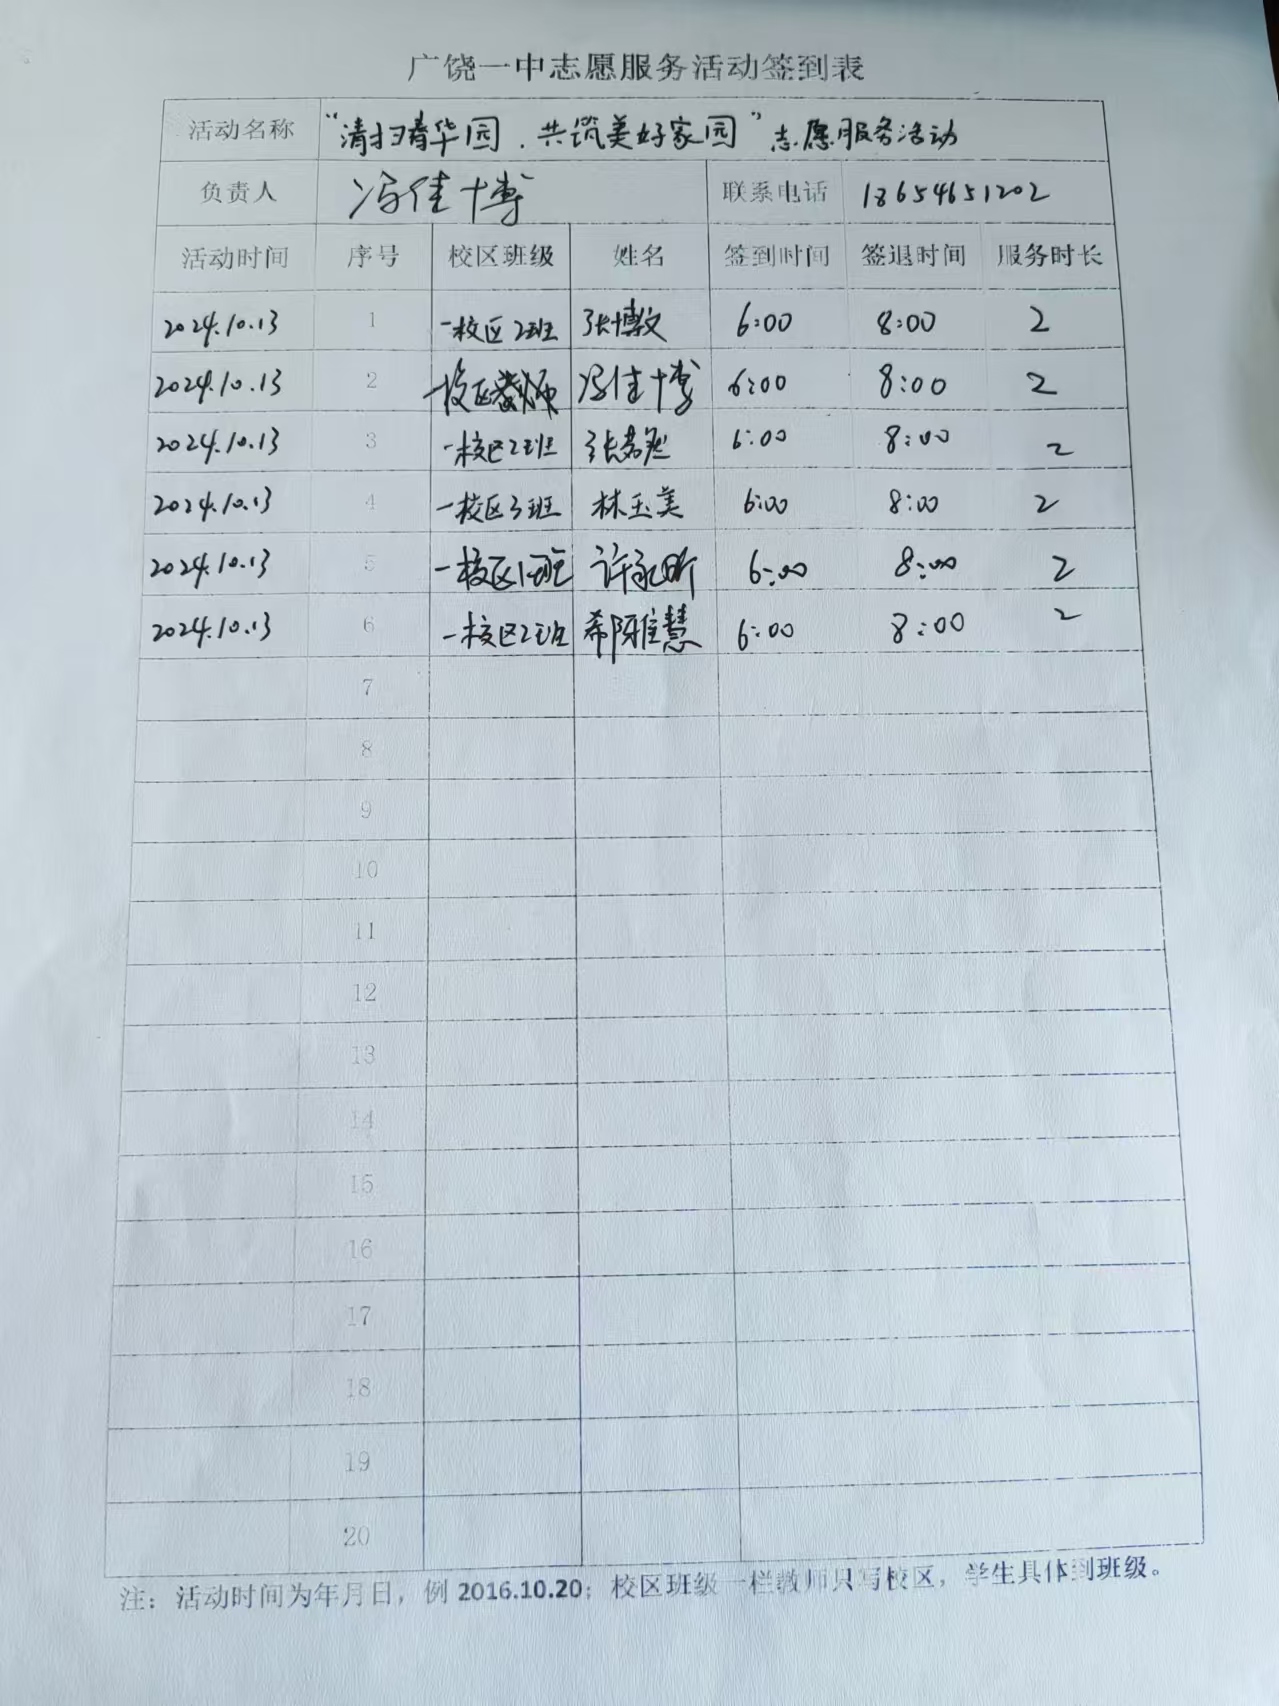 广饶一中志愿服务活动签到表
活动名称 “清扫清华园.共筑美好家园”志愿服务活动
负责人 冯佳博 联系电话 18654651202
活动时间 序号 校区班级 姓名 签到时间 签退时间 服务时长
2024.10.13 1 一校区2班 张博文 6:00 8:00 2
2024.10.13 2 一校区教师 冯佳博 6:00 8:00 2
2024.10.13 3 一校区2班 张 6:00 8:00 2
2024.10.13 4 一校区3班 林玉美 6:00 8:00 2
2024.10.13 5 一校区1班 许永昕 6:00 8:00 2
2024.10.13 6 一校区2班 雅慧 6:00 8:00 2
7
8
9
10
11
12
13
14
15
16
17
18
19
20
注：活动时间为年月日，例 2016.10.20；校区班级一栏教师只写校区，学生具体到班级。